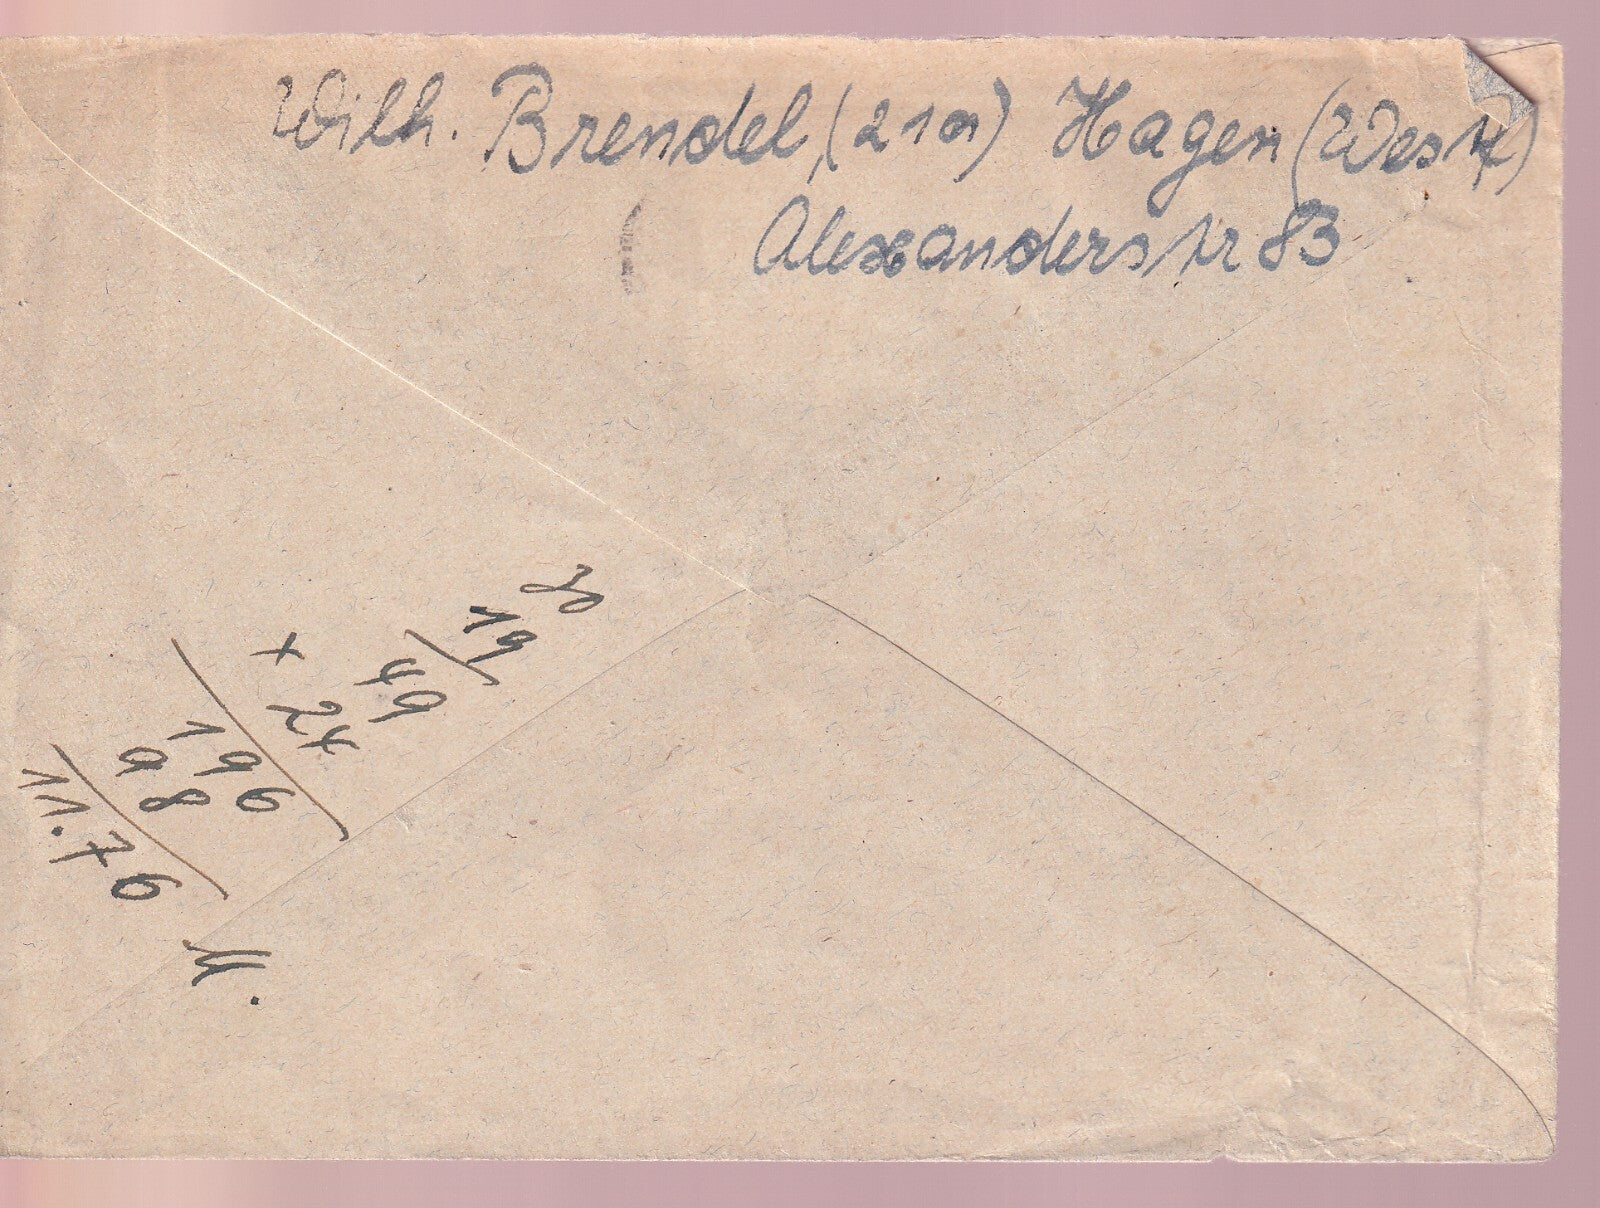 Wilh. Brendel, (21a) Hagen (Westf)
Alexanderstr 83
30
19
49
x 24
196
98
11.76 M.